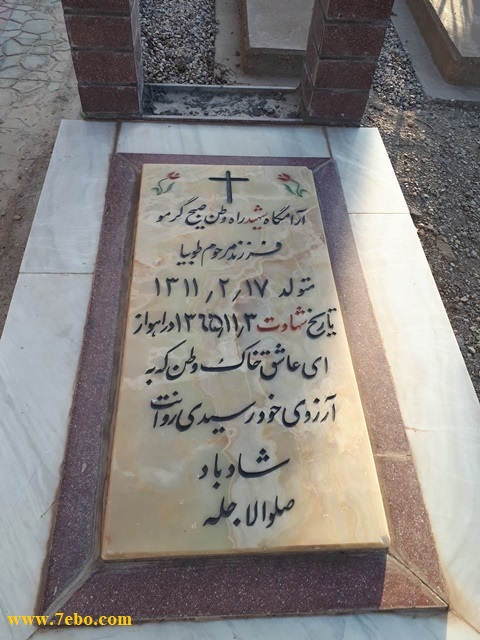 آرامگاه شهید راه وطن صبح گرمو
فرزند مرحوم طوبیا
متولد ۱۳۱۱٫۲٫۱۷
تاریخ شهادت ۱۳۶۵٫۱۱٫۳ در اهواز
ای عاشق خاک وطن که به
آرزوی خود رسیدی روانت
شاد باد
صلوا لاجله
www.7ebo.com